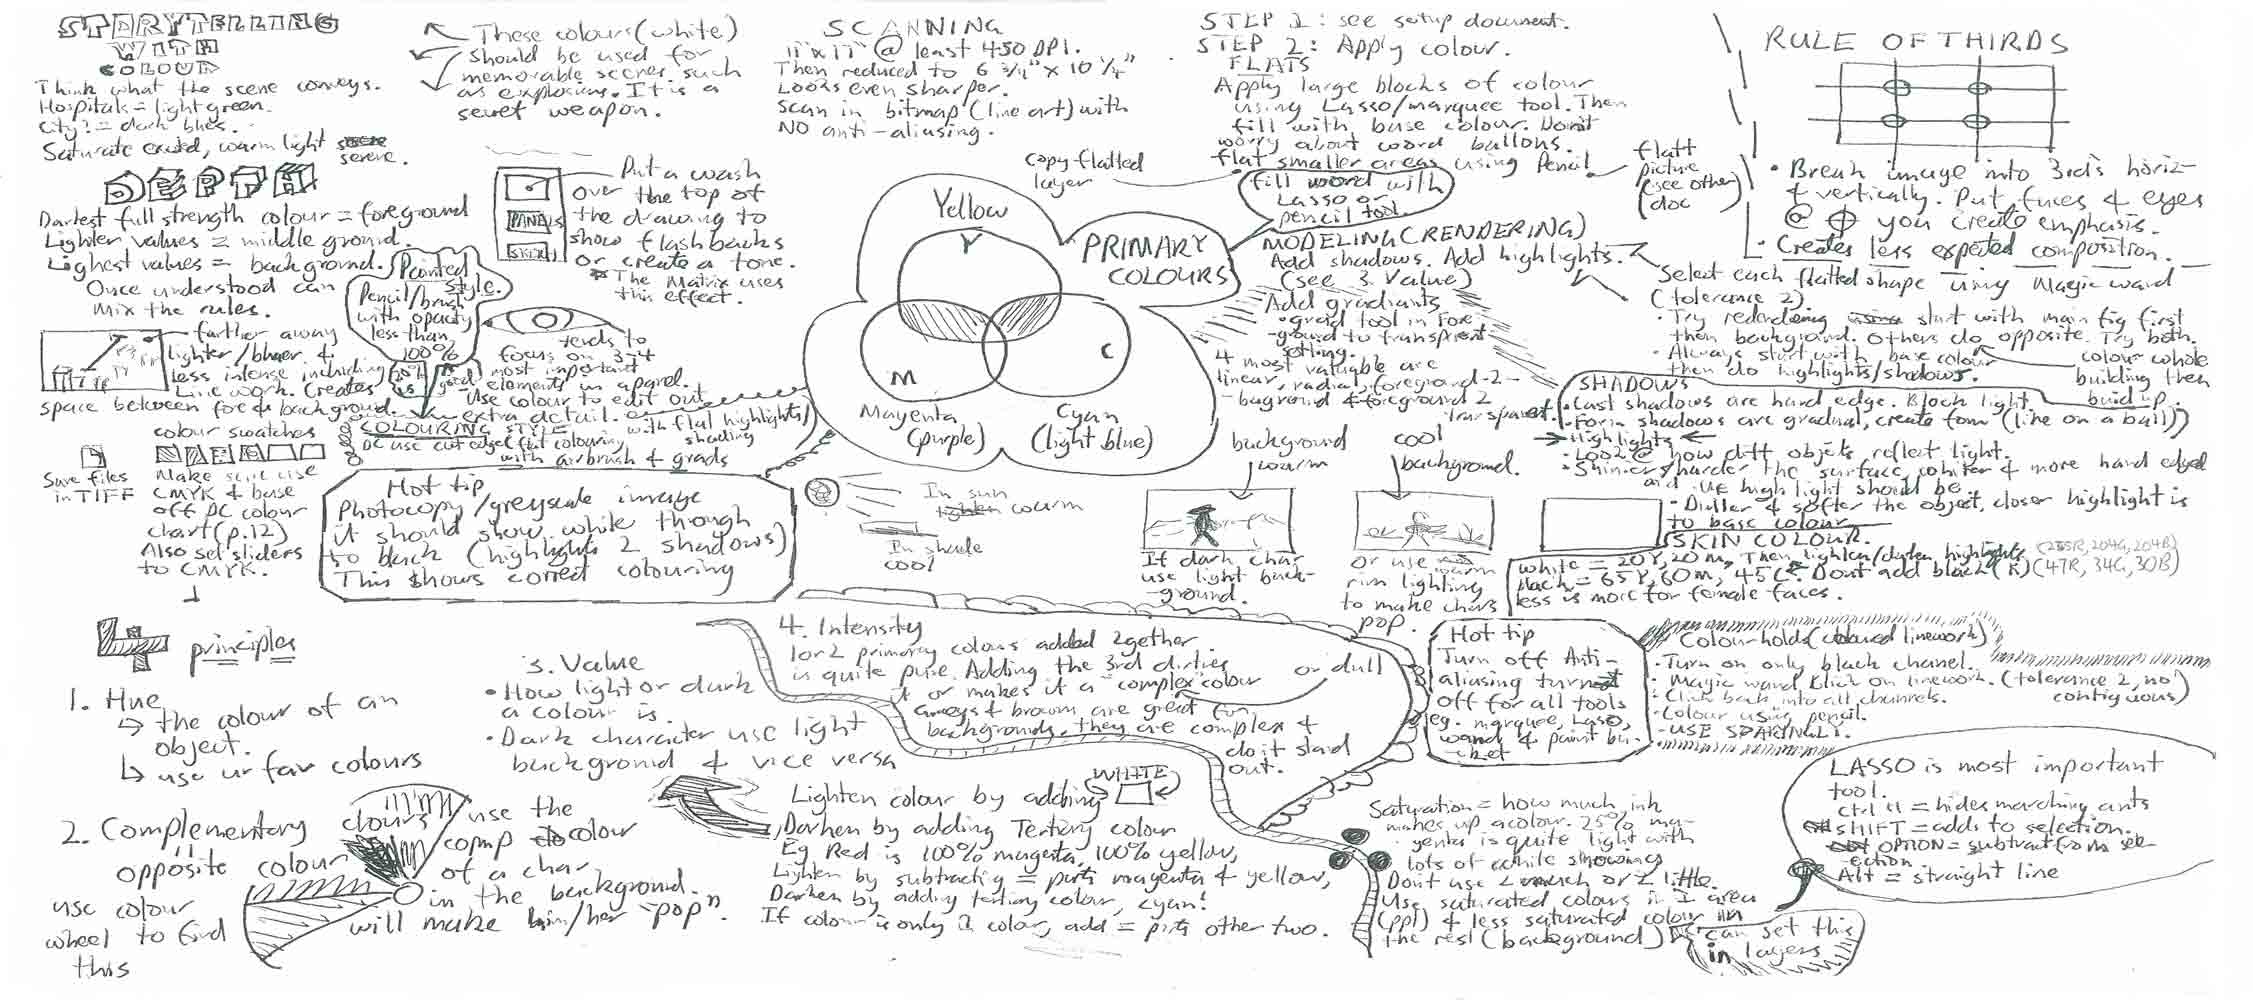 STORYTELLING
WITH
COLOUR
Think what the scene conveys.
Hospitals = light green.
City? = dark blues.
Saturate excited, warm light
serene.
These colours (white)
should be used for
memorable scenes such
as explosions. It is a
secret weapon.
DEPTH
Darkest full strength colour = foreground
Lighter values = middle ground.
Lighest values = background.
Once understood can
mix the rules.
Painted
style.
Pencil/brush
with opacity
less than
100%
PANELS
Put a wash
over the top of
the drawing to
show flashbacks
or create a tone.
* The Matrix uses
this effect.
farther away
lighter/bluer &
less intense including
line work. Creates
space between fore & background.
tends to
focus on 3-4
most important
elements in apanel.
Use colour to edit out
extra detail.
COLOURING STYLE
with flat highlights/
shading
DC use cut edge/flat colouring
with airbrush & grads
colour swatches
Save files
in TIFF
Make sure use
CMYK & base
off DC colour
chart (p.12)
Also set sliders
to CMYK.
Hot tip
Photocopy/greyscale image
it should show white though
to black (highlights 2 shadows)
This shows correct colouring
SCANNING
11"x17" @ least 450 DPI.
Then reduced to 6 3/4" x 10 1/4"
Looks even sharper.
Scan in bitmap (line art) with
NO anti-aliasing.
STEP 1: see setup document.
STEP 2: Apply colour.
FLATS
Apply large blocks of colour
using Lasso/marquee tool. Then
fill with base colour. Dont
worry about word ballons.
flat smaller areas using Pencil
copy flatted
layer
fill word with
Lasso or
pencil tool.
flatt
picture
(see other
doc
PRIMARY
COLOURS
Yellow
Y
M
C
Magenta
(purple)
Cyan
(light blue)
MODELING (RENDERING)
Add shadows. Add highlights.
(see 3. Value)
Add gradiants
• grad tool in Fore
-ground to transparent
setting.
4 most valuable are
linear, radial, foreground-2-
-background & foreground 2
transparent.
RULE OF THIRDS
• Break image into 3rds horiz-
& vertically. Put faces & eyes
@ you create emphasis.
• Creates less expected composition.
Select each flatted shape using Magic wand
(tolerance 2).
• Try rendering start with main fig first
then background. Others do opposite. Try both.
• Always start with base colour
then do highlights/shadows.
colour whole
building then
build up.
SHADOWS
• Cast shadows are hard edge. Block light
• Form shadows are gradual, create form (like on a ball)
Highlights
• Look @ how diff objects reflect light.
• Shinier/harder the surface, whiter & more hard edged
and the highlight should be.
• Duller & softer the object, closer highlight is
to base colour
SKIN COLOUR.
white = 20Y, 20m, Then lighten/darken highlights (255R, 204G, 204B)
black = 65Y, 60m, 45C. Dont add black (K) (47R, 34G, 30B)
less is more for female faces.
In sun
warm
In shade
cool
background
warm
cool
background.
If dark char
use light back-
ground.
or use
rim lighting
to make chars
pop.
principles
1. Hue
the colour of an
object.
use ur fav colours
2. Complementary colours
opposite colour
use colour
wheel to find
this
use the
comp colour
of a char
in the background
will make him/her "pop".
3. Value
• How light or dark
a colour is.
• Dark character use light
background & vice versa
4. Intensity
1 or 2 primary colours added 2gether
is quite pure. Adding the 3rd dirties
it or makes it a "complex" colour
or dull
Greys & brown are great for
backgrounds, they are complex &
do it stand
out.
WHITE
Lighten colour by adding
Darken by adding Tertiary colour
Eg Red is 100% magenta, 100% yellow,
Lighten by subtracting = parts magenta & yellow,
Darken by adding tertiary colour, cyan!
If colour is only 1 color, add = parts other two.
Saturation = how much ink
makes up a colour. 25% ma-
genta is quite light with
lots of white showing
Dont use 2 much or 2 little.
Use saturated colours in 1 area
(ppl) & less saturated colour in
the rest (background)
can set this
in layers
Hot tip
Turn off Anti-
aliasing
off for all tools
eg. marquee, Laso,
wand & paint bu-
-cket
Colour holds (coloured linework)
• Turn on only black chanel.
• Magic wand klick on linework. (tolerance 2, no
contiguous)
• Click back into all channels.
• Colour using pencil.
- USE SPARINGLY.
LASSO is most important
tool.
ctrl H = hides marching ants
SHIFT = adds to selection.
OPTION = subtract from sel-
ection
Alt = straight line